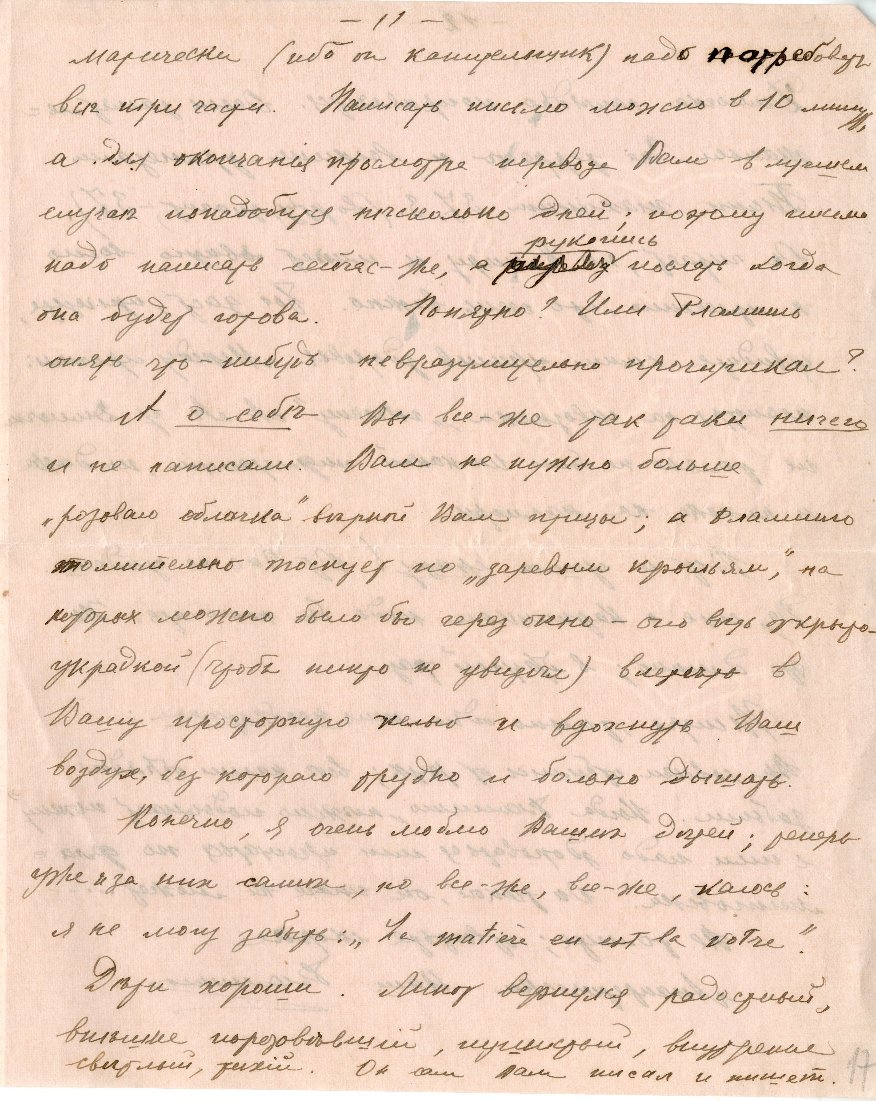 — 11 —
марически (ибо он канительщик) надо потребовать
всѣ три части. Написать письмо можно в 10 минут,
а для окончанія просмотра перевода Вам в лучшем
случаѣ понадобится нѣсколько дней; поэтому письмо
рукопись
надо написать сейчас-же, а послать когда
она будет готова. Понятно? Или Фламинго
опять что-нибудь невразумительно прочирикал?
А о себѣ Вы все-же так таки ничего
и не написали. Вам не нужно больше
„розоваго облачка" вѣрной Вам птицы; а Фламинго
томительно тоскует по „заревым крыльям", на
которых можно было бы через окно – оно вѣдь открыто –
украдкой (чтобы никто не увидѣл) влетѣть в
Вашу просторную келью и вдохнуть Ваш
воздух, без котораго трудно и больно дышать.
Конечно, я очень люблю Ваших дѣтей; теперь
уже и за них самих, но все-же, все-же, каюсь:
я не могу забыть: „la matière en est la vôtre".
Дѣти хороши. вернулся радостный,
внѣшне порозовѣвшій, пушистый, внутренне
свѣтлый, тихій. Он сам Вам писал и пишет.
17